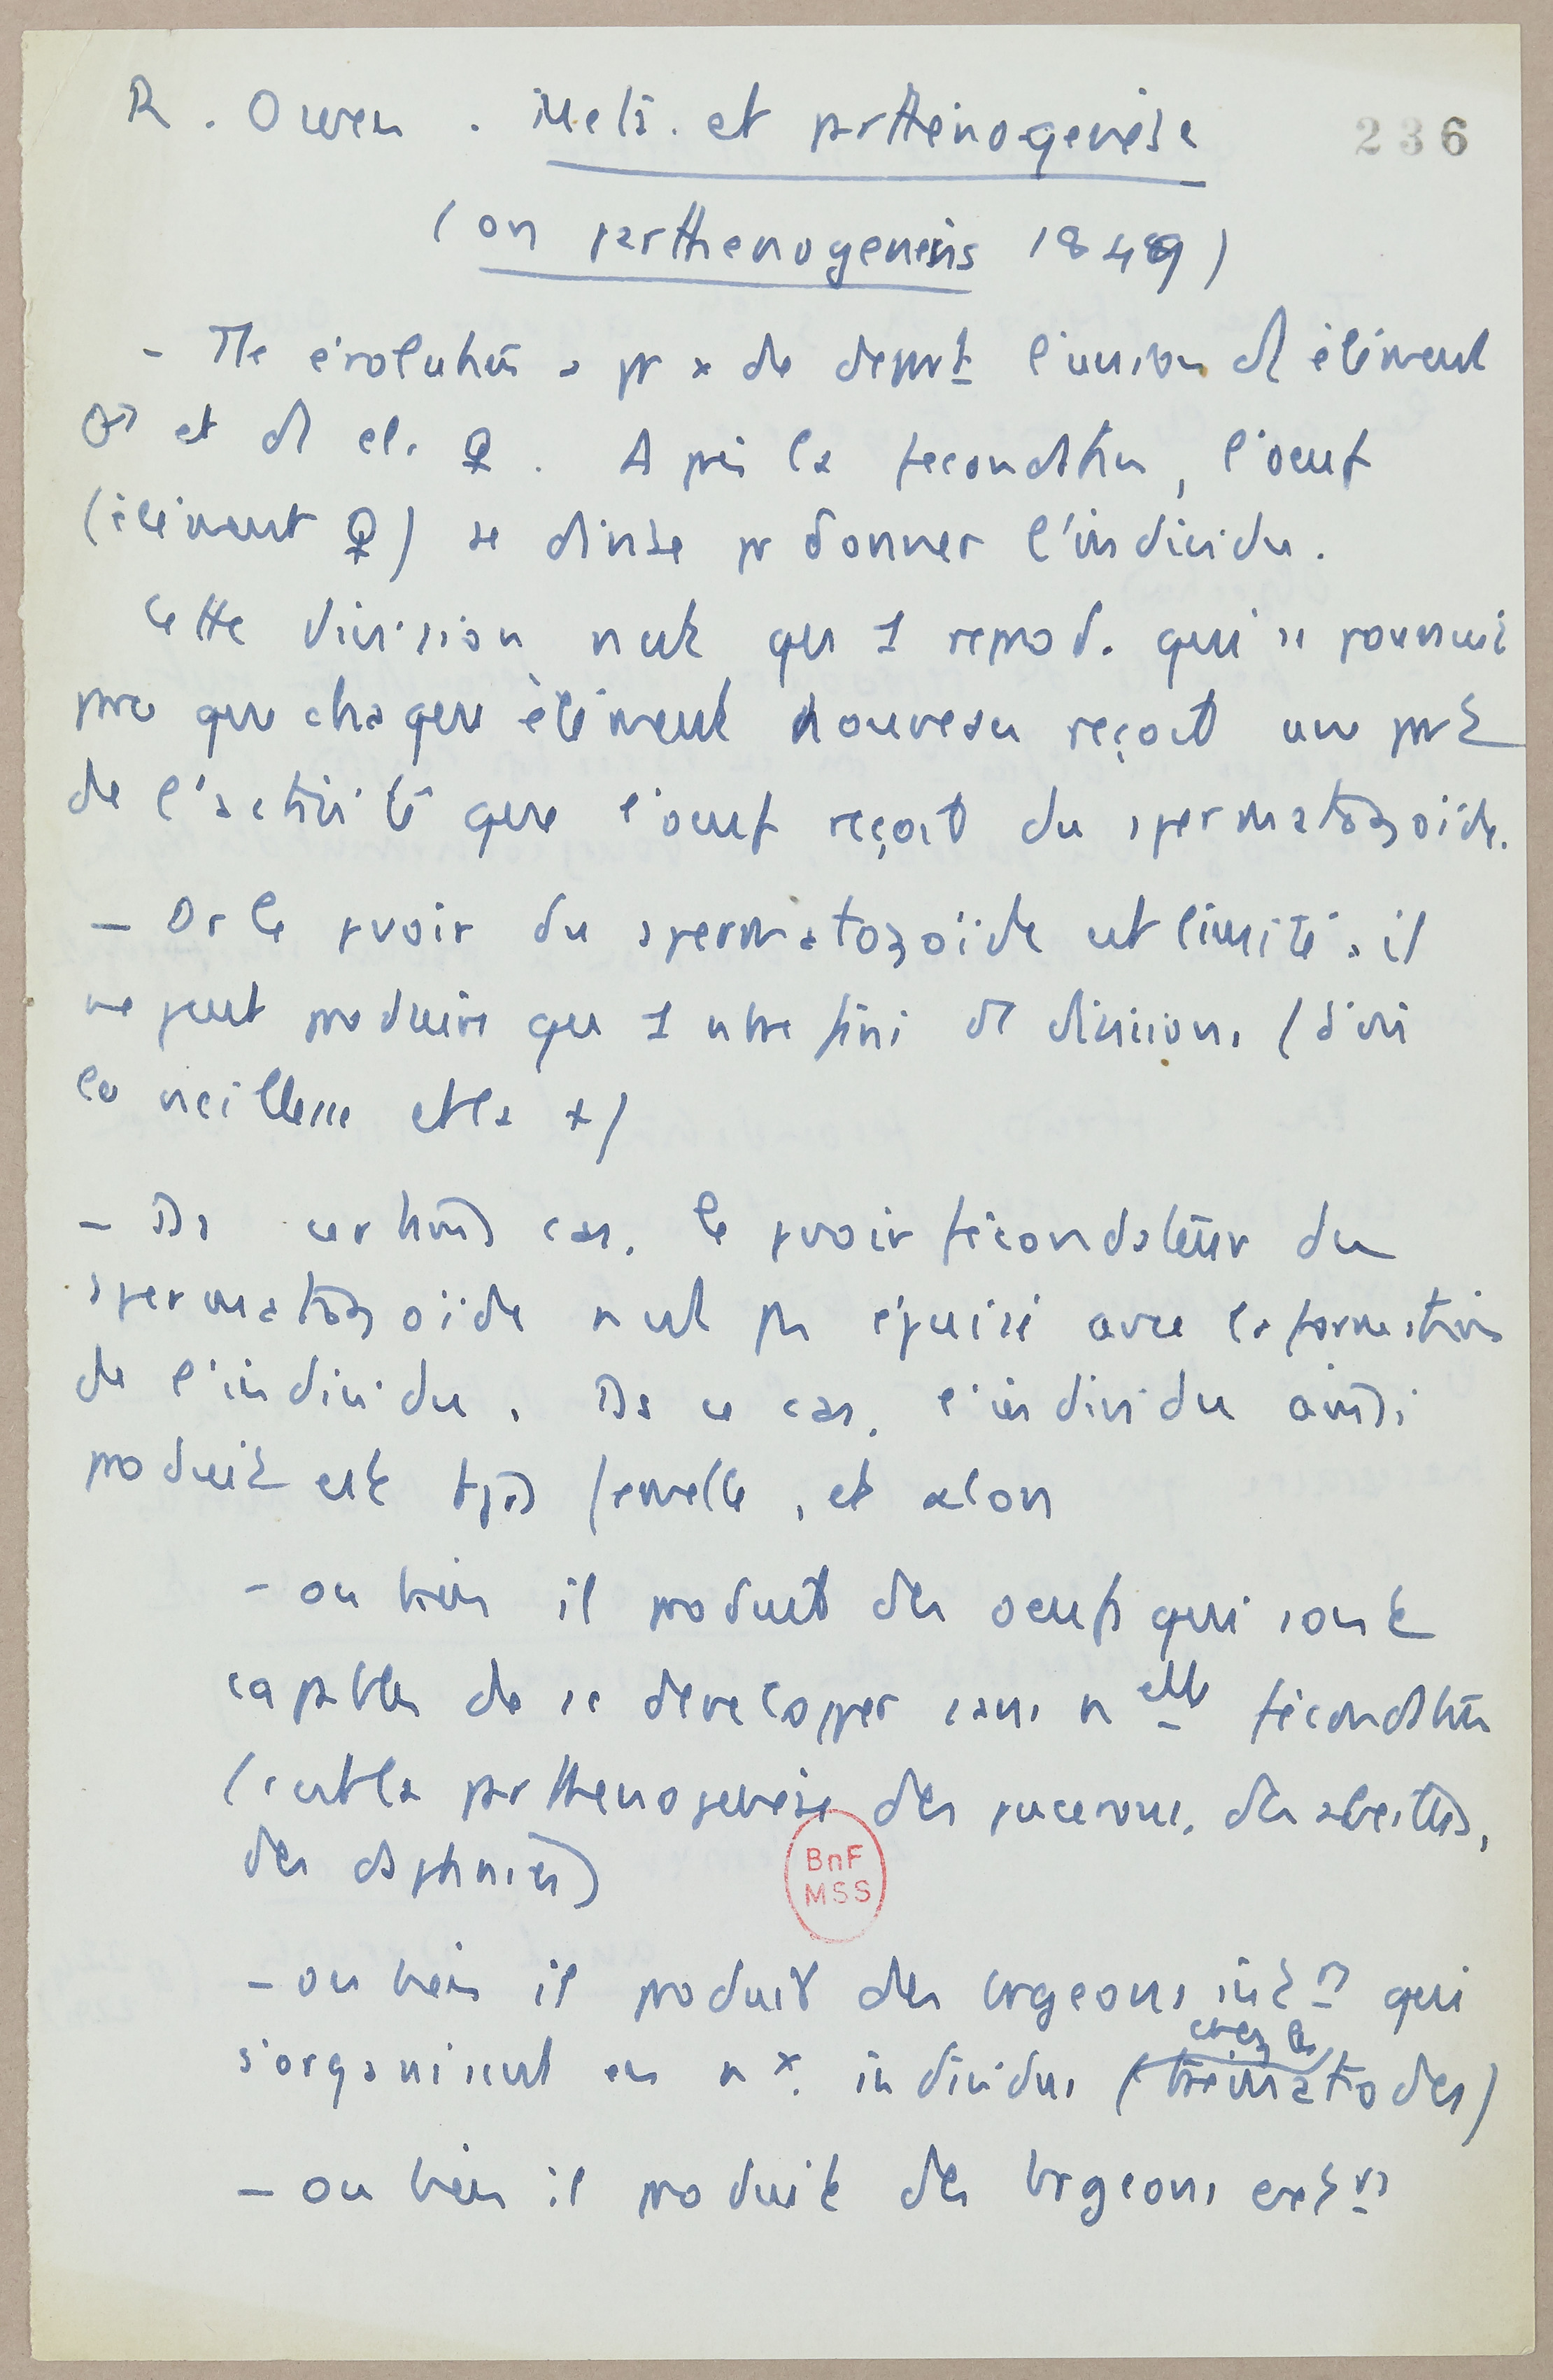 R. Owen. Meta. et parthénogenèse
236
(on parthenogenesis 1849)
- Tte évolution a pr × de depart l'union d'1 élément
♂ et d'1 el. ♀. Après la fecondation, l'oeuf
(élément ♀) se divise pr donner l'individu.
Cette division n'est que 1 reprod. qui se poursuit
pre que chaque élément nouveau reçoit une part
de l'activité que l'oeuf reçoit du spermatozoïde.
- Or le pvoir du spermatozoïde est limité. il
ne peut produire que 1 nbre fini de divisions (d'où
la vieillesse et la +)
- Ds certains cas, le pvoir fécondateur du
spermatozoïde n'est pas épuisé avec la formation
de l'individu. Ds ce cas, l'individu ainsi
produit est tjrs femelle, et alors
- ou bien il produit des oeufs qui sont
capables de se developper sans nelle fécondation
(c'est la parthenogenèse des pucerons, des abeilles,
des daphnies)
BnF
MSS
- ou bien il produit des brgeons intrs qui
s'organisent en nx individus (chez les trematodes)
- ou bien il produit des brgeons extrs